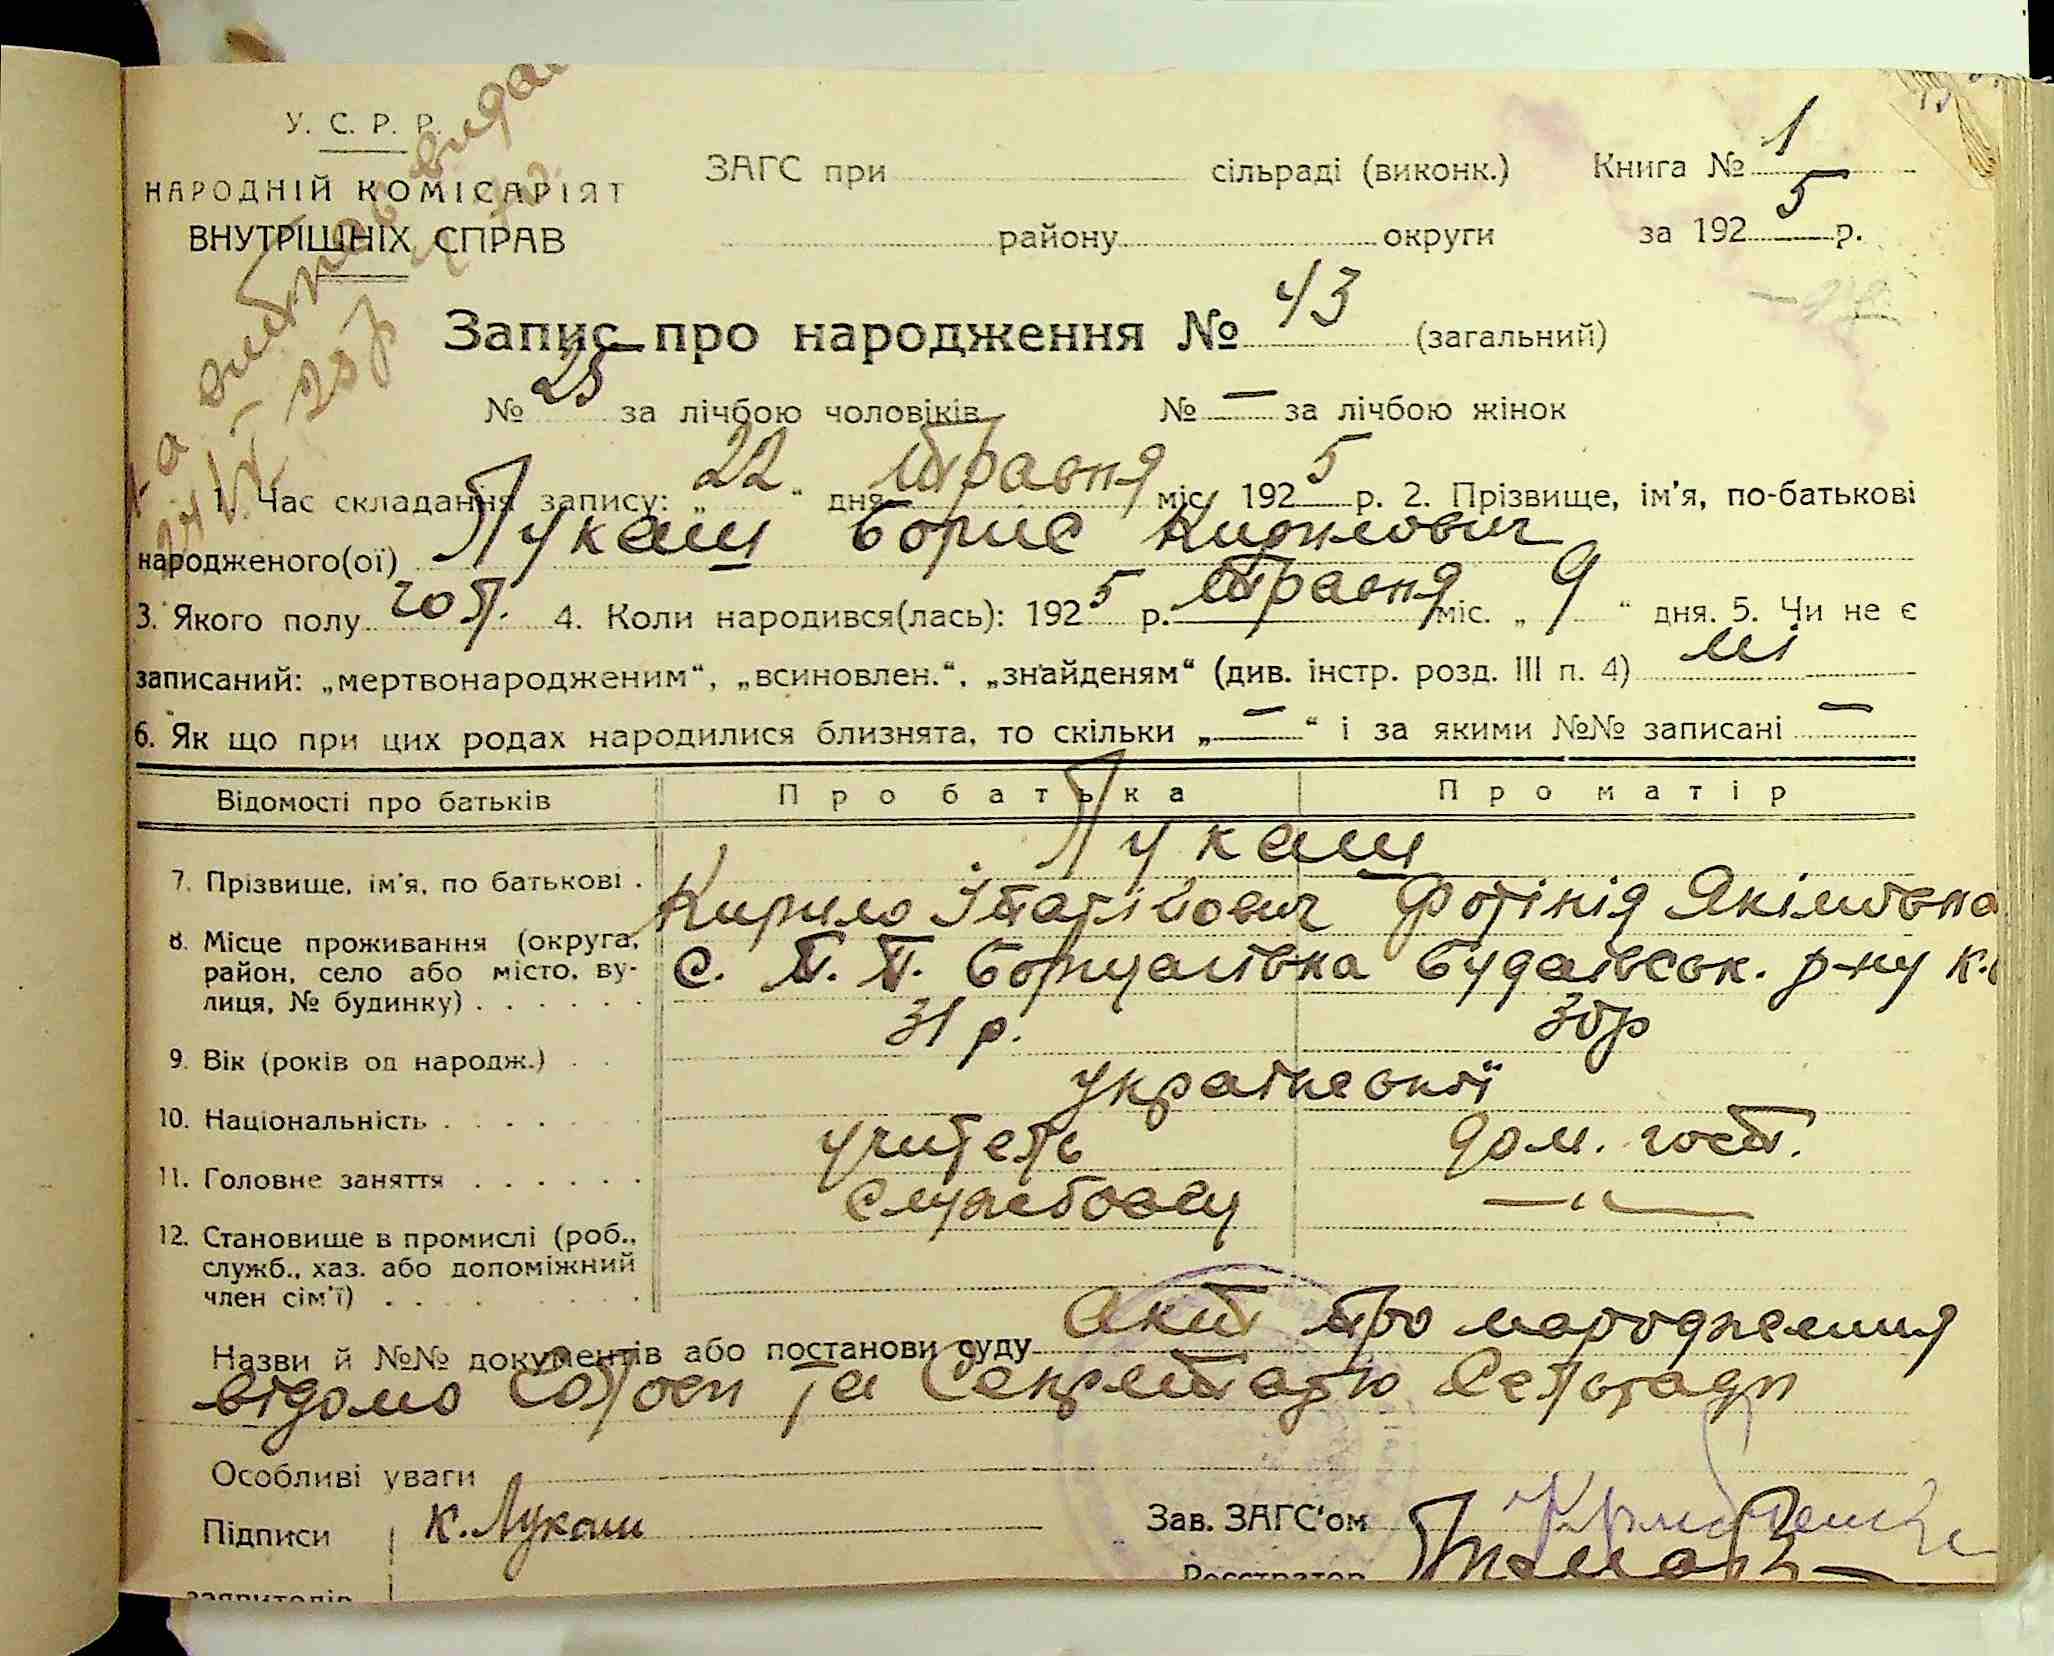 У. С. Р. Р.
НАРОДНІЙ КОМІСАРІЯТ
ВНУТРІШНІХ СПРАВ
ЗАГС при сільраді (виконк.)
району округи
Книга № 1
за 1925 р.
Запис про народження № 43 (загальний)
№ 25 за лічбою чоловіків № — за лічбою жінок
1. Час складання запису: „22“ дня травня міс. 1925 р. 2. Прізвище, ім'я, по-батькові
народженого(ої) Лукаш Борис Кирилович
3. Якого полу чол. 4. Коли народився(лась): 1925 р. травня міс. „9“ дня. 5. Чи не є
записаний: „мертвонародженим“, „всиновлен.“, „знайденям“ (див. інстр. розд. III п. 4) ні
6. Як що при цих родах народилися близнята, то скільки „—“ і за якими №№ записані —
Відомості про батьків Про батька Про матір
Лукаш
7. Прізвище, ім'я, по батькові . Кирило Фотінія Якімовна
8. Місце проживання (округа, район, село або місто, вулиця, № будинку) . . . . . . с. П. П. Борщагівка Будаївськ. р-ну
9. Вік (років од народж.) . . 31 р. 30р
10. Національність . . . . . . . української
11. Головне заняття . . . . . . учитель дом. госп.
12. Становище в промислі (роб., служб., хаз. або допоміжний член сім'ї) . . . . . . . . . службовец — „ —
Назви й №№ документів або постанови суду акт про народження
відомо Голові та Секретарю Сельради
Особливі уваги
Підписи К. Лукаш
Зав. ЗАГС'ом
заявителів
Реєстратор